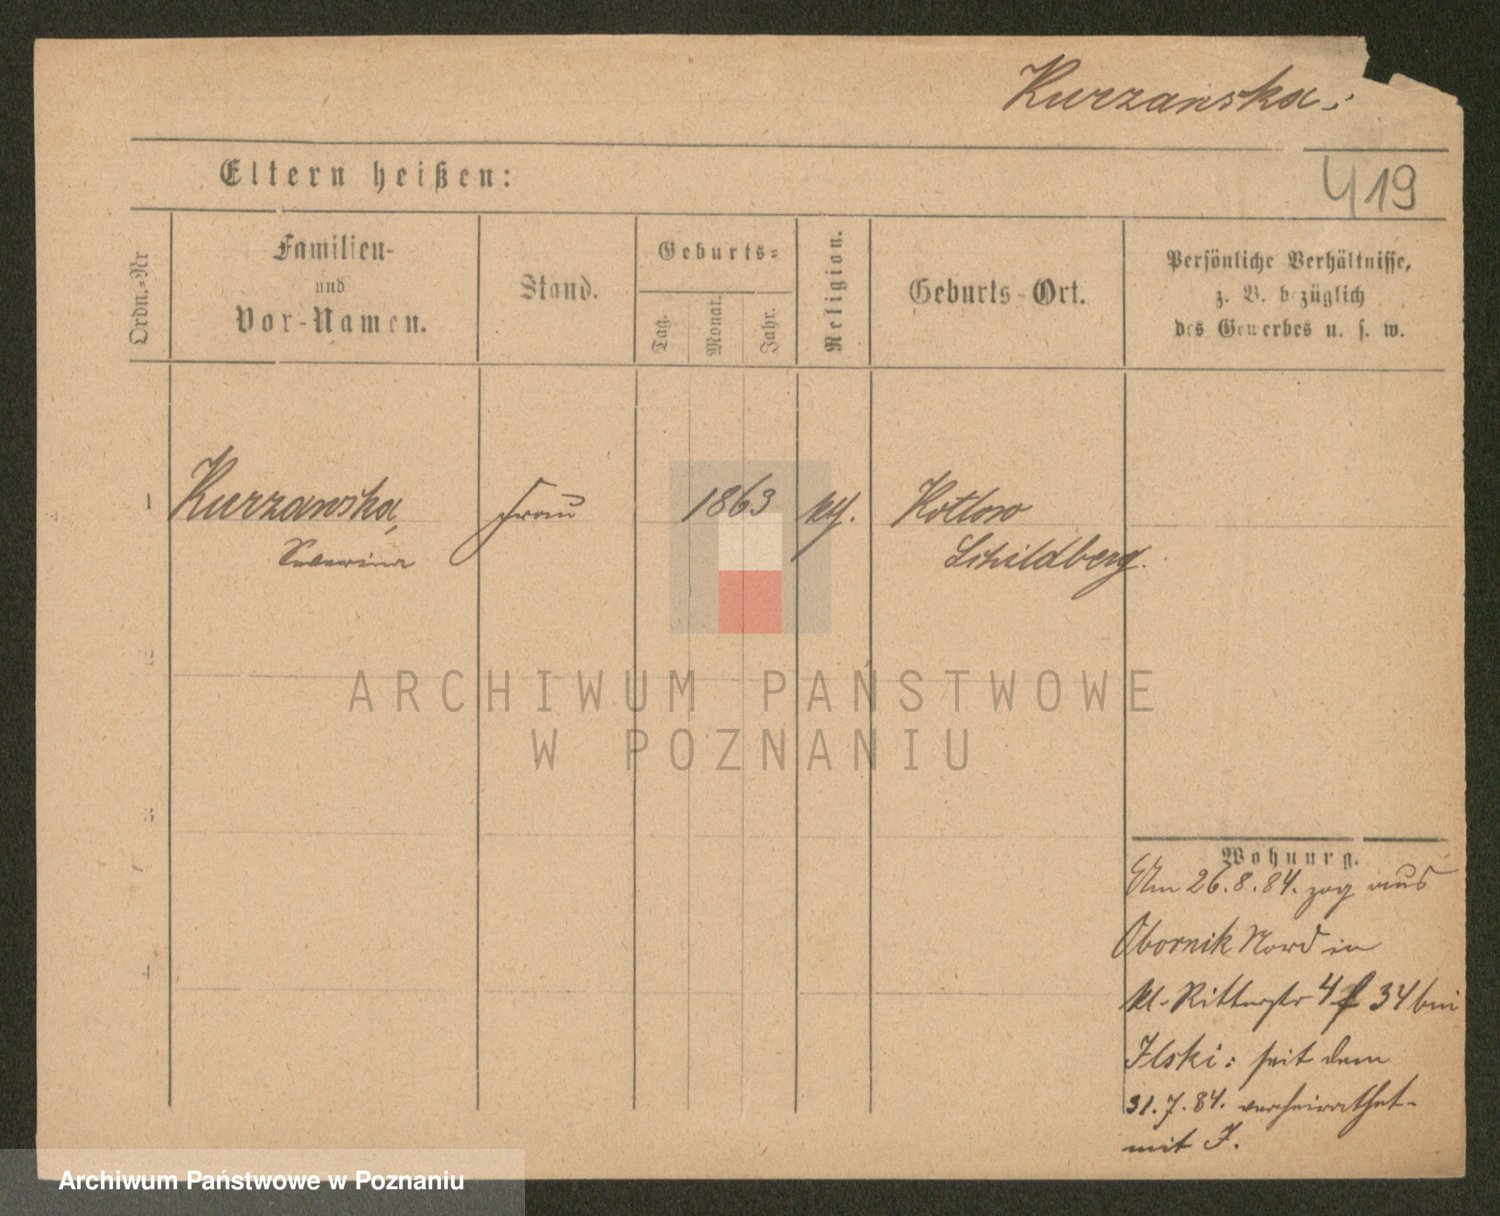 Kurzanska:
419
Eltern heißen:
Ordn.-Nr
Familien-
und
Vor-Namen.
Stand.
Geburts-
Tag.
Monat.
Jahr.
Religion.
Geburts-Ort.
Persönliche Verhältnisse,
z. B. bezüglich
des Gewerbes u. s. w.
1 Kurzanska, Frau 1863 kth. Kotlow
Severina Schildberg.
2
ARCHIWUM PAŃSTWOWE
W POZNANIU
3
Wohnung.
Am 26.8.84. zog aus
Obornik Nord in
kl. Ritterstr 4 34 bei
Ilski: seit dem
31.7.84. verheirathet
mit I.
Archiwum Państwowe w Poznaniu